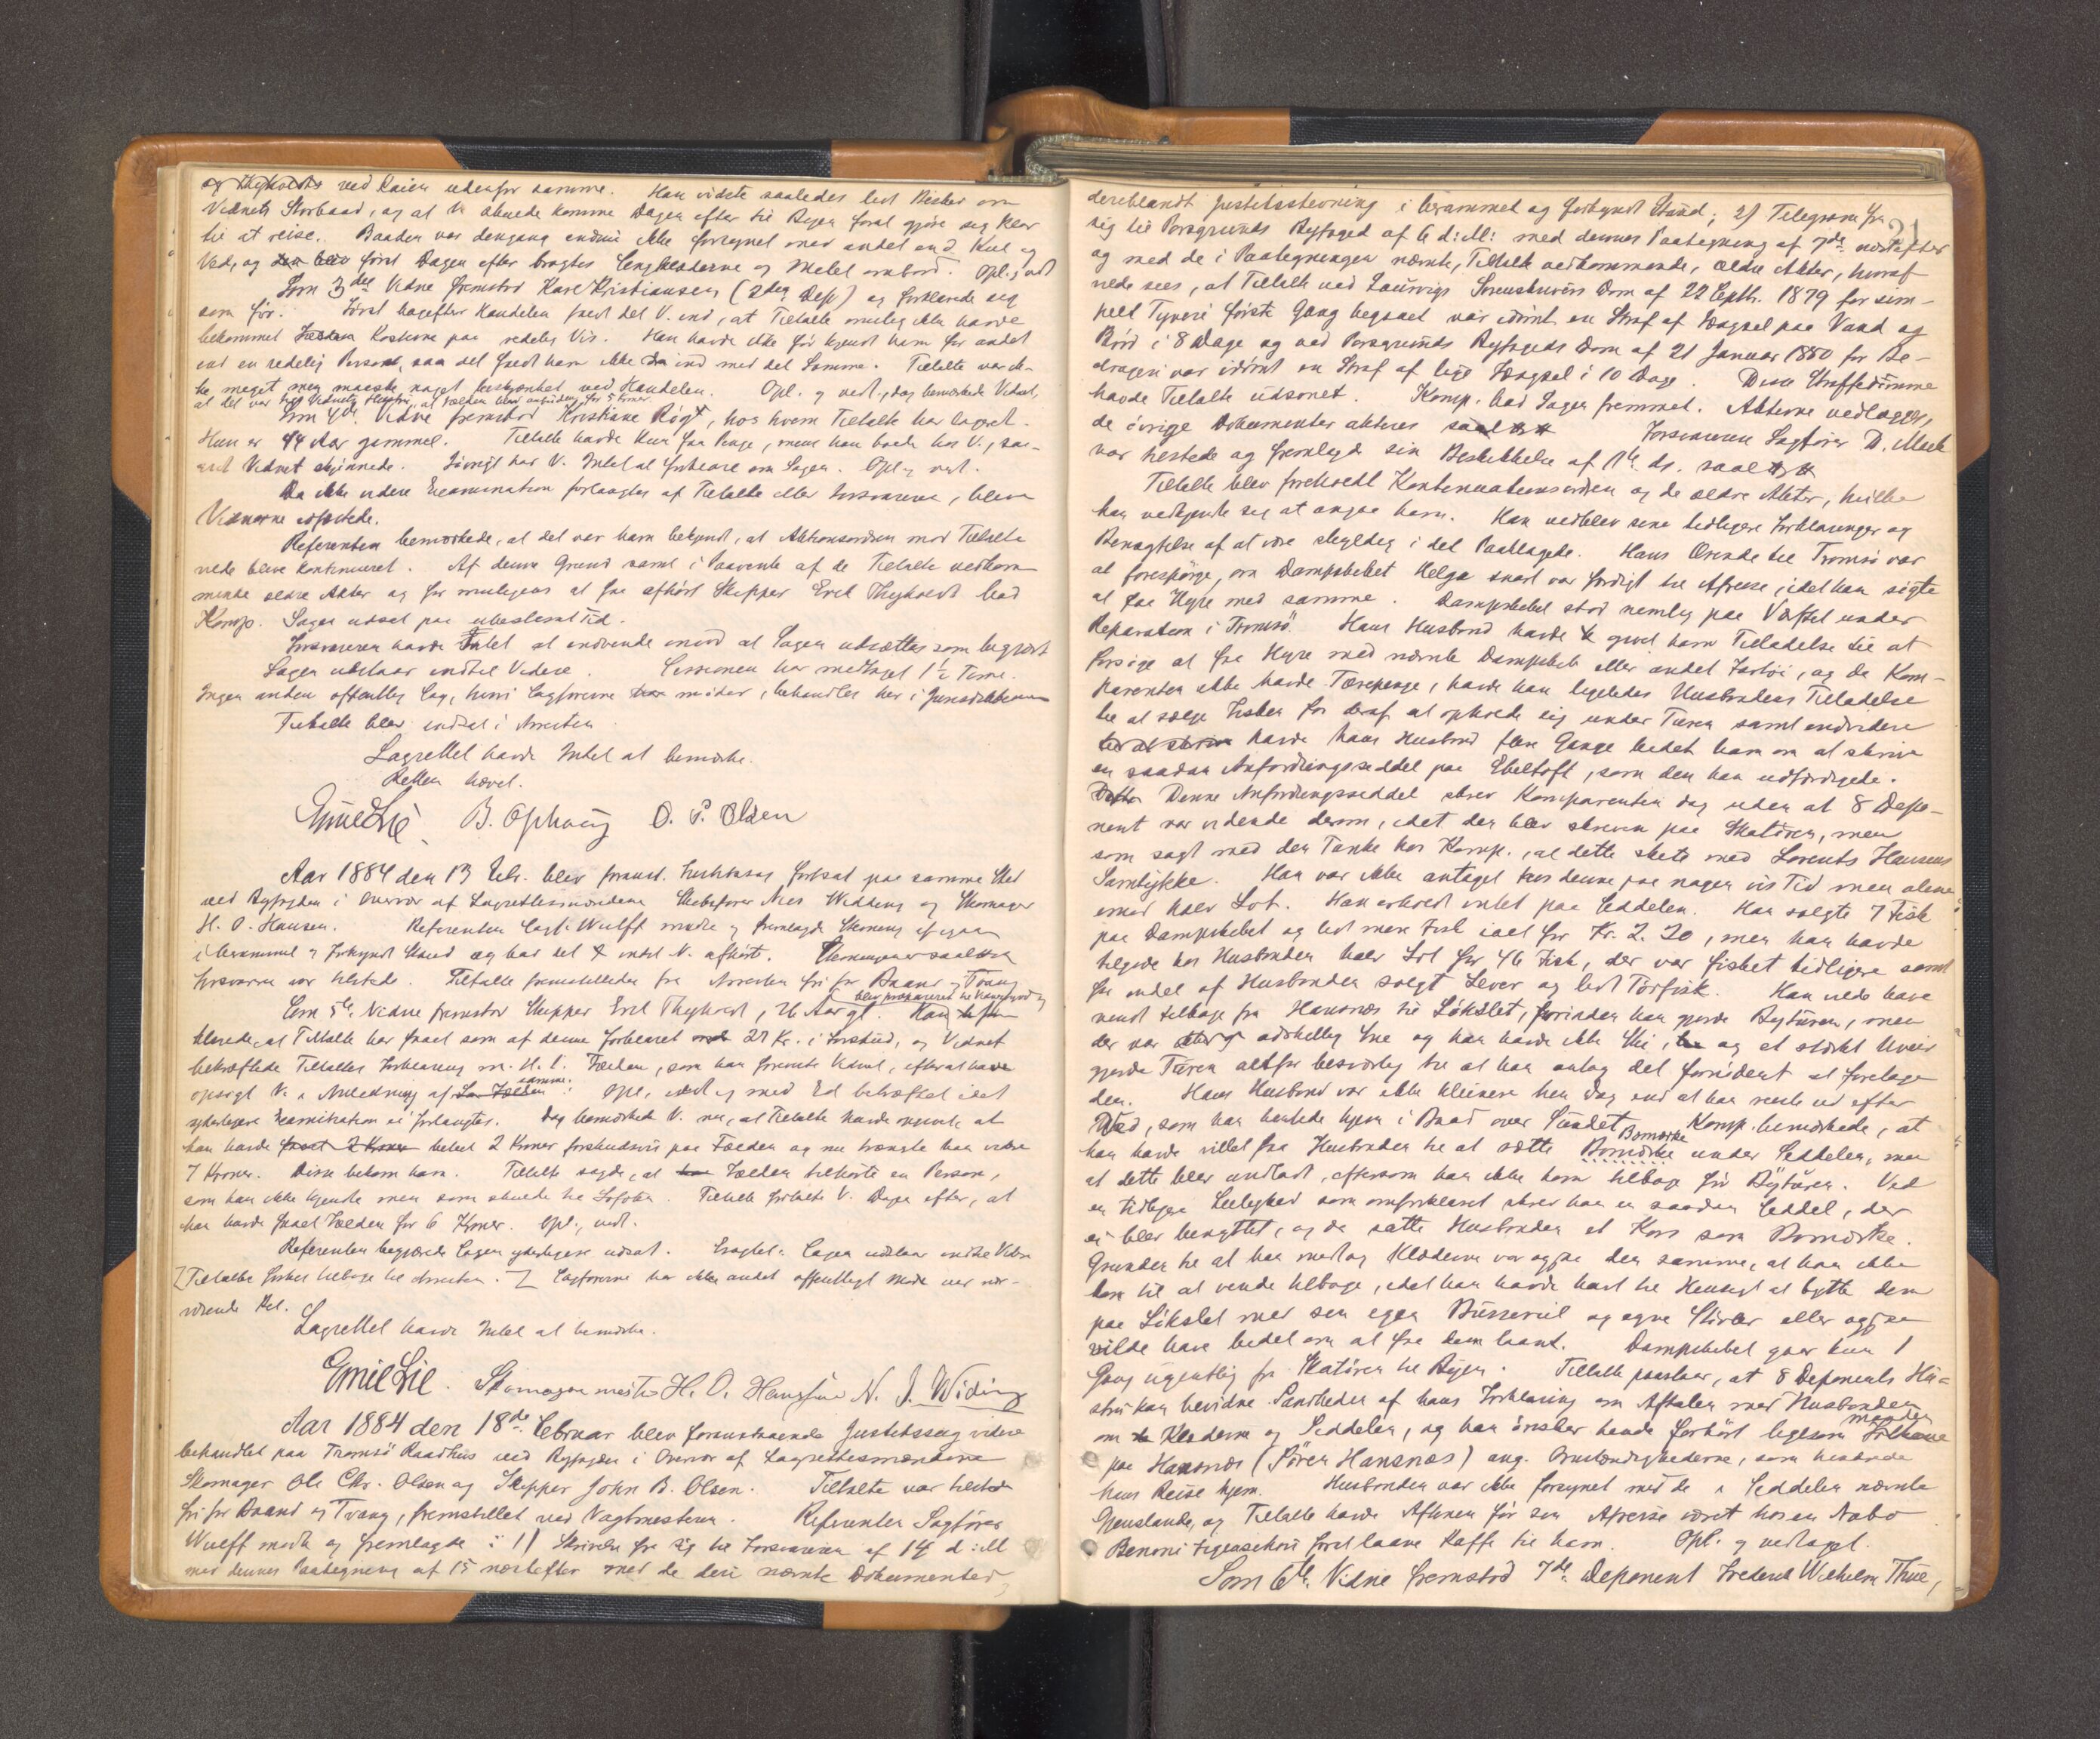 ved Kaien udenfor samme. Han vidste saaledes lidt Besked om
Vidnets Storbaad, og at skulde komme Dagen efter til Byen forat gjøre seg klar
til at reise. Baaden var dengang endnu ikke forsynet med andet end Kul og
Ved, og først Dagen efter bragtes Sengklæderne og Melet ombord. Opl., vedt.
Som 3die Vidne fremstod Karl Kristiansen (2den Dep) og forklarede seg
som før. Først bagefter Handelen faldt det V. ind, at Tiltalte mulig ikke havde
bekommet Koskene paa redelig Vis. Han havde ikke før kjendt ham for andet
end en redelig Person, saa det faldt ham ikke ind med det Samme. Tiltalte var ik-
ke meget men maaske noget beskjænket ved Handelen. Opl. og vedt., dog bemærkede Vidnet,
at det var
Som 4de Vidne fremstod Kristiane Røgt, hos hvem Tiltalte har logeret.
Hun er 44 Aar gammel. Tiltalte havde kun faa Penge, mens han boede hos V., saa-
vidt Vidnet skjønnede. Iøvrigt har V. Intet at forklare om Sagen. Opl. vedt.
Da ikke videre Examination forlangtes af Tiltalte eller Forsvareren, bleve
Vidnerne
Referenten bemærkede, at det var ham bekjendt, at Aktionsordren mod Tiltalte
vilde blive kontinueret. Af denne Grund samt i Paavente af de Tiltalte vedkom-
mende ældre Akter og for muligens at faa afhørt Skipper Erik Thyholdt bad
Komp. Sagen udsat paa ubestemt Tid.
Forsvareren havde Intet at indvende imod at Sagen udsættes som begjært
Sagen udstaar indtil Videre. Sessionen har medtaget 1½ Time.
Ingen anden offentlig Sag, hvori Sagførerne møder, behandles her i Jurisdiktionen
Tiltalte blev indsat i Arresten.
Lagrettet havde Intet at bemærke.
Retten hævet.
Emil Lie B. Ophaug O. P. Olsen
Aar 1884 den 13 Febr. blev foranst. Justitssag fortsat paa samme Sted
ved Byfogden i Overvær af Lagrettesmændene Skibsfører Nils Widding og Skomager
H. O. Hansen. Referenten Sagf. Wulff mødte og fremlagde Stevning af igaar
i berammet og forkyndt Stand og bad det intet V. afhørt.
Forsvareren var tilstede. Tiltalte fremstilledes fra Arresten fri for Baand og Tvang
Som 5te Vidne fremstod Skipper Erik Thyholdt, 26 Aar gl.
klarede, at Tiltalte har faaet som af denne forklaret 27 Kr. i Forskud, og Vidnet
bekræftede Tiltaltes Forklaring m. H. t. Fælden, som han foreviste Vidnet, efterat have
opsagt V. i Anledning af samme. Opl., vedt og med Ed bekræftet idet
yderligere Examination ei forlangtes. Dog bemærked V. nu, at Tiltalte havde nævnt, at
han havde betalt 2 Kroner forskudsvis paa Fælden og nu trængte han videre
7 Kroner. Disse bekom ham. Tiltalte sagde, at Fælden tilhørte en Person,
som han ikke kjendte men som skulde til Lofoten. Tiltalte fortalte V. Dagen efter, at
han havde faaet Fælden for 6 Kroner. Opl., vedt.
Referenten begjærede Sagen yderligere udsat. Eragtet: Sagen udstaar indtil Videre
Tiltalte føres tilbage til Arresten. Sagførerne har ikke andet offentligt Møde ved nær-
værende Ret.
Lagrettet havde Intet at bemærke.
Emil Lie. Skomagermester H. O. Hansen N. J. Widing
Aar 1884 den 18de Februar blev foranstaaende Justitssag videre
behandlet paa Tromsø Raadhus ved Byfogden i Overvær af Lagrettesmændene
Skomager Ole Chr. Olsen og Skipper John B. Olsen. Tiltalte var tilstede
fri for Baand og Tvang, fremstillet ved Vagtmesteren. Referenten Sagfører
Wulff mødte og fremlagde: 1) Skrivelse fra sig til Forsvareren af 14 d:M
med dennes Paategning af 15 næstefter med de deri nævnte Dokumenter,
21
deriblandt Justitsstevning i berammet og forkyndt Stand; 2) Telegram fra
sig til Porsgrunds Byfoged af 6 d:M: med dennes Paategning af 7de næstefter
og med de i Paategningen nævnte, Tiltalte vedkommende, ældre Akter, hvoraf
vilde sees, at Tiltalte ved Laurvigs Sorenskrivers Dom af 22 Septbr. 1879 for sim-
pelt Tyveri første Gang begaaet var idømt en Straf af Fængsel paa Vand og
Brød i 8 Dage og ved Porsgrunds Byfogeds Dom af 21 Januar 1880 for Be-
drageri var idømt en Straf af lige Fængsel i 10 Dage. Disse Straffedomme
havde Tiltalte udsonet. Komp. bad Sagen fremmet. Akterne vedlægges,
de øvrige Dokumenter akteres saal. Forsvareren Sagfører D. Mack
var tilstede og fremlagde sin Beskikkelse af ds. saal.
Tiltalte blev foreholdt Kontinuationsordren og de ældre Akter, hvilke
han vedkjendte sig at angaa ham. Han vedblev sine tidligere Forklaringer og
Benægtelse af at være skyldig i det Paaklagede. Hans Ærinde til Tromsø var
at forespørge, om Dampskibet Helga snart var færdigt til Afreise, idet han søgte
at faa Hyre med samme. Dampskibet stod nemlig paa Værftet under
Reparation i Tromsø. Hans Husbond havde givet ham Tilladelse til at
forsøge at faa Hyre med nævnte Dampskib eller andet Fartøi, og da Kom-
parenten ikke havde Tærepenge, havde han ligeledes Husbondens Tilladelse
til at sælge Fisken for deraf at opholde sig under Turen samt endvidere
havde hans Husbond flere Gange bedet ham om at skrive
en saadan Anfordringsseddel paa Ebeltoft, som den han udfærdigede.
Denne Anfordringsseddel skrev Komparenten dog uden at 8 Depo-
nent var vidende derom, idet den blev skreven paa Skatøren, men
som sagt med den Tanke hos Komp., at dette skete med Lorents Hansens
Samtykke. Han var ikke antaget hos denne paa nogen vis Tid men alene
imod halv Lot. Han erholdt intet paa Seddelen. Han solgte 7 Fisk
paa Dampskibet og lidt mere Fisk ialt for Kr. 2. 20, men han havde
tilgode hos Husbonden halv Lot for 46 Fisk, der var fisket tidligere samt
for endel af Husbonden solgt Lever og lidt Tørfisk. Han vilde have
vendt tilbage fra Hansnæs til Løkslet, forinden han gjorde Byturen, men
der var adskillig Sne og han havde ikke Ski, og et stærkt Uveir
gjorde Turen altfor besværlig til at han antog det forsvarligt at foretage
den. Hans Husbond var ikke kleinere hin Dag end at han reiste ud efter
Ved, som han hentede hjem i Baad over Sundet. Komp. bemærkede, at
han havde villet faa Husbonden til at sætte Bomærke under Seddelen, men
at dette blev undladt, eftersom han ikke kom tilbage før Byturen. Ved
en tidligere Leilighed som omforklaret skrev han en saadan Seddel, der
ei blev benyttet, og da satte Husbonden et Kors som Bomærke.
Grunden til at han medtog Klæderne var ogsaa den samme, at han ikke
kom til at vende tilbage, idet han havde havt til Hensigt at bytte dem
paa Løkslet med sin egen Busserul og egne Støvler eller ogsaa
vilde have bedet om at faa dem laant. Dampskibet gaar kun 1
Gang ugentlig fra Skatøren til Byen. Tiltalte paastaar, at 8 Deponents Hu-
stru kan bevidne Sandheden af hans Forklaring om Aftalen med Husbonden
om Klæderne og Seddelen, og han ønsker hende forhørt ligesom manden
paa Hansnæs (Søren Hansnæs) ang. Omstændighederne, som hindrede
hans Reise hjem. Husbonden var ikke forsynet med de i Seddelen nævnte
Gjenstande, og Tiltalte havde Aftenen før sin Afreise været hos en Nabo
Benoni for at laane Kaffe til ham. Opl. og vedtaget.
Som 6te Vidne fremstod 7de Deponent Frederik Wilhelm Thue,